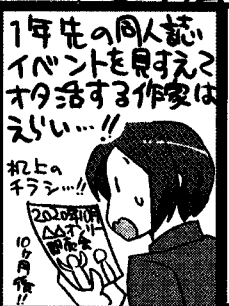 1年先の同人誌
イベントを見すえて
オタ活する作家は
えらい…!!
机上の
チラシ…!!
2020年10月
△△オンリー
即売会
10ヶ月後!!